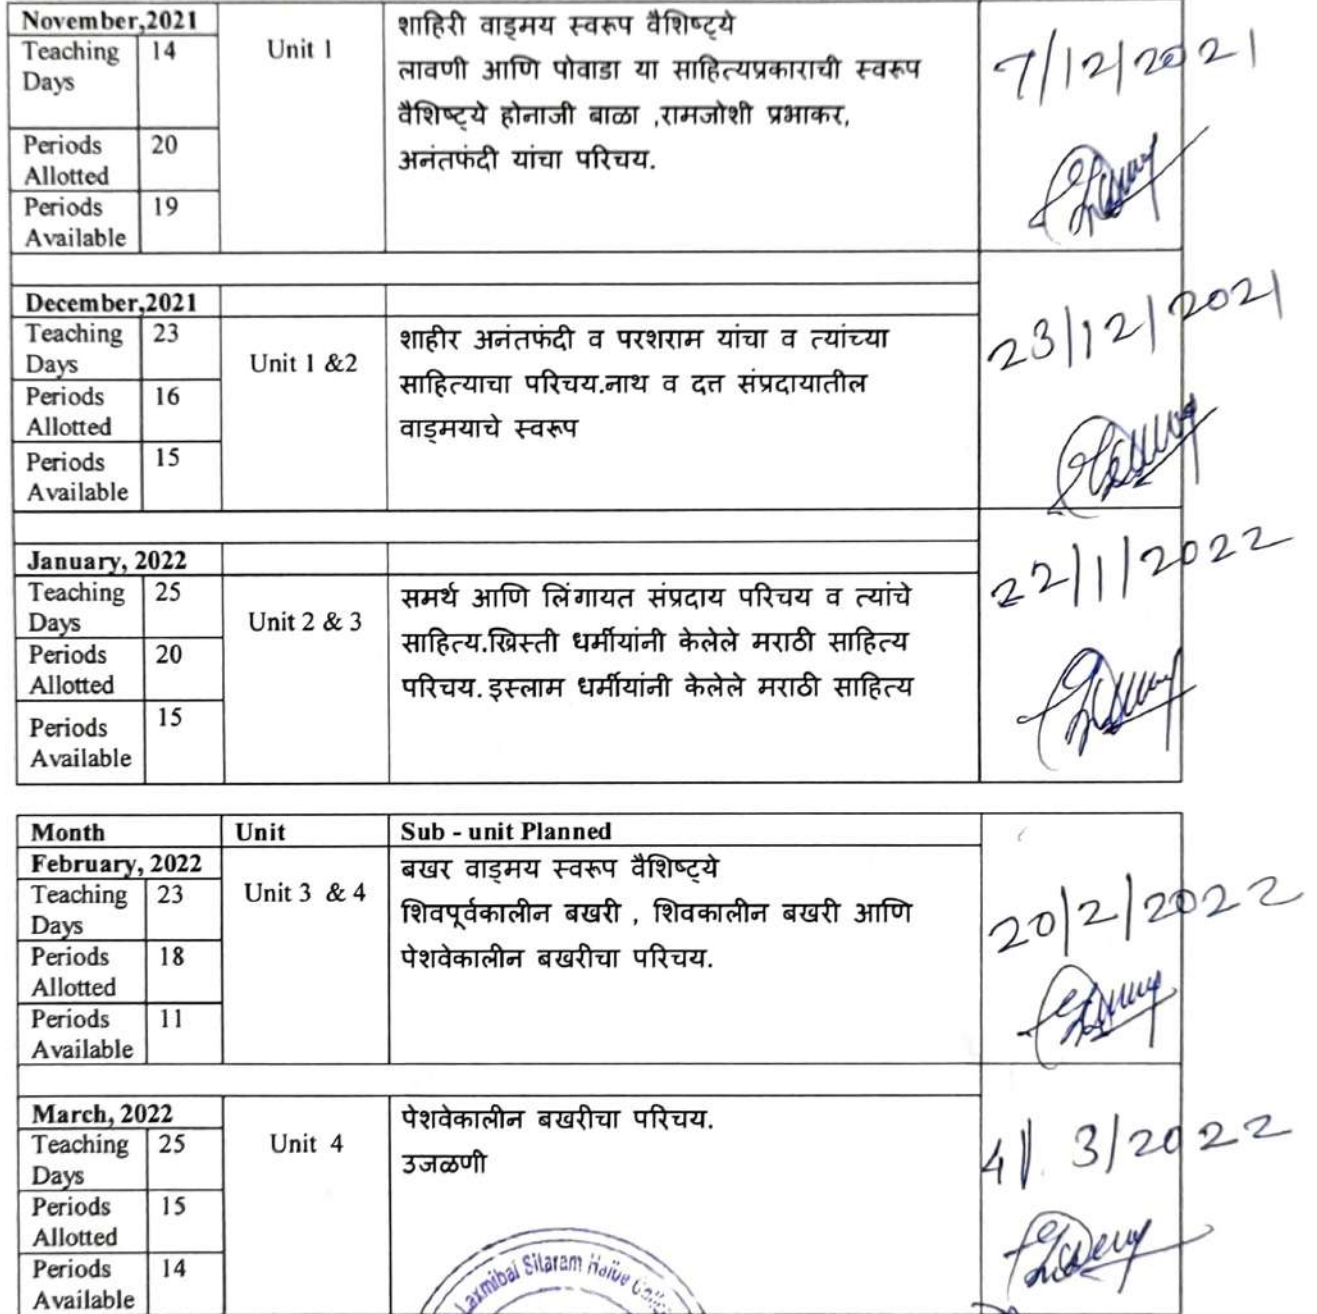 November,2021
Teaching Days 14
Unit 1
शाहिरी वाङ्मय स्वरूप वैशिष्ट्ये
लावणी आणि पोवाडा या साहित्यप्रकाराची स्वरूप
वैशिष्ट्ये होनाजी बाळा ,रामजोशी प्रभाकर,
अनंतफंदी यांचा परिचय.
7/12/2021
Periods Allotted 20
Periods Available 19
December,2021
Teaching Days 23
Unit 1 &2
शाहीर अनंतफंदी व परशराम यांचा व त्यांच्या
साहित्याचा परिचय.नाथ व दत्त संप्रदायातील
वाङ्मयाचे स्वरूप
23/12/2021
Periods Allotted 16
Periods Available 15
January, 2022
Teaching Days 25
Unit 2 & 3
समर्थ आणि लिंगायत संप्रदाय परिचय व त्यांचे
साहित्य.ख्रिस्ती धर्मीयांनी केलेले मराठी साहित्य
परिचय. इस्लाम धर्मीयांनी केलेले मराठी साहित्य
22/1/2022
Periods Allotted 20
Periods Available 15
Month Unit Sub - unit Planned
February, 2022
Teaching Days 23
Unit 3 & 4
बखर वाङ्मय स्वरूप वैशिष्ट्ये
शिवपूर्वकालीन बखरी , शिवकालीन बखरी आणि
पेशवेकालीन बखरीचा परिचय.
20/2/2022
Periods Allotted 18
Periods Available 11
March, 2022
Teaching Days 25
Unit 4
पेशवेकालीन बखरीचा परिचय.
उजळणी
3/2022
Periods Allotted 15
Periods Available 14
Laxmibai Sitaram